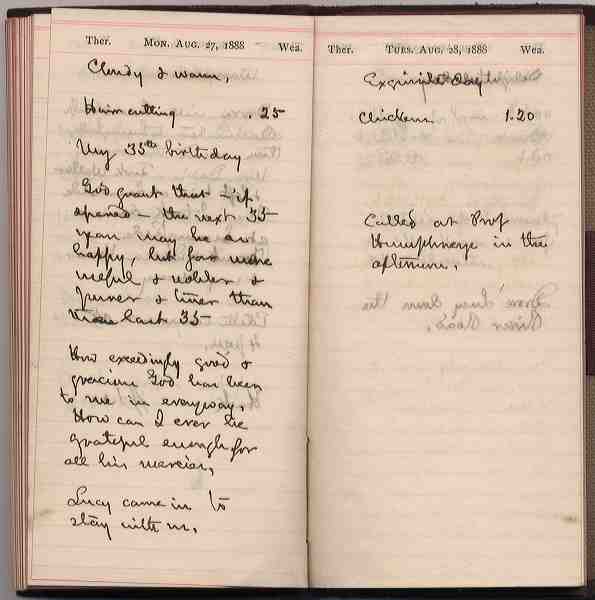 Ther. MON. AUG. 27, 1888 Wea.
Cloudy & warm,
Hair cutting . 25
My 35th birthday
God grant that - if
spared - the next 35
years may be as
happy, but far more
useful & nobler &
purer & truer than
the last 35
How exceedingly good &
gracious God has been
to me in everyway,
How can I ever be
grateful enough for
all his mercies,
Lucy came in to
stay with us,
Ther. TUES. AUG. 28, 1888 Wea.
Exquisite day
Chickens 1.20
Called at Prof
Humphreys in the
afternoon,